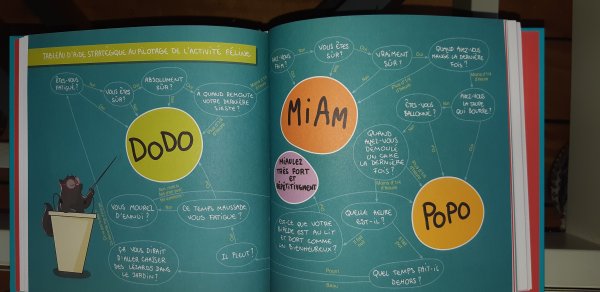 TABLEAU D'AIDE STRATÉGIQUE AU PILOTAGE DE L'ACTIVITÉ FÉLINE
ÊTES-VOUS
FATIGUÉ ?
Non
VOUS ÊTES
SÛR ?
ABSOLUMENT
SÛR ?
À QUAND REMONTE
VOTRE DERNIÈRE
SIESTE ?
DODO
VOUS MOUREZ
D'ENNUI ?
CE TEMPS MAUSSADE
VOUS FATIGUE ?
ÇA VOUS DIRAIT
D'ALLER CHASSER
DES LÉZARDS DANS
LE JARDIN ?
IL PLEUT ?
FAIM ?
VOUS ÊTES
SÛR ?
Oui
VRAIMENT
SÛR ?
Oui
QUAND AVEZ-VOUS
MANGÉ LA DERNIÈRE
FOIS ?
MIAM
Non
Plus d'1/4
d'heure
Moins d'1/4
d'heure
ÊTES-VOUS
BALLONNÉ ?
AVEZ-VOUS
LA TAUPE
QUI BOURRE ?
QUAND
AVEZ-VOUS
DÉMOULÉ
UN CAKE
LA DERNIÈRE
FOIS ?
Moins d'1/4
d'heure
MIAULEZ
TRÈS FORT
ET
RÉPÉTITIVEMENT
POPO
EST-CE QUE VOTRE
BIPÈDE EST AU LIT
ET DORT COMME
UN BIENHEUREUX ?
QUELLE HEURE
EST-IL ?
Pourri
Beau
QUEL TEMPS FAIT-IL
DEHORS ?